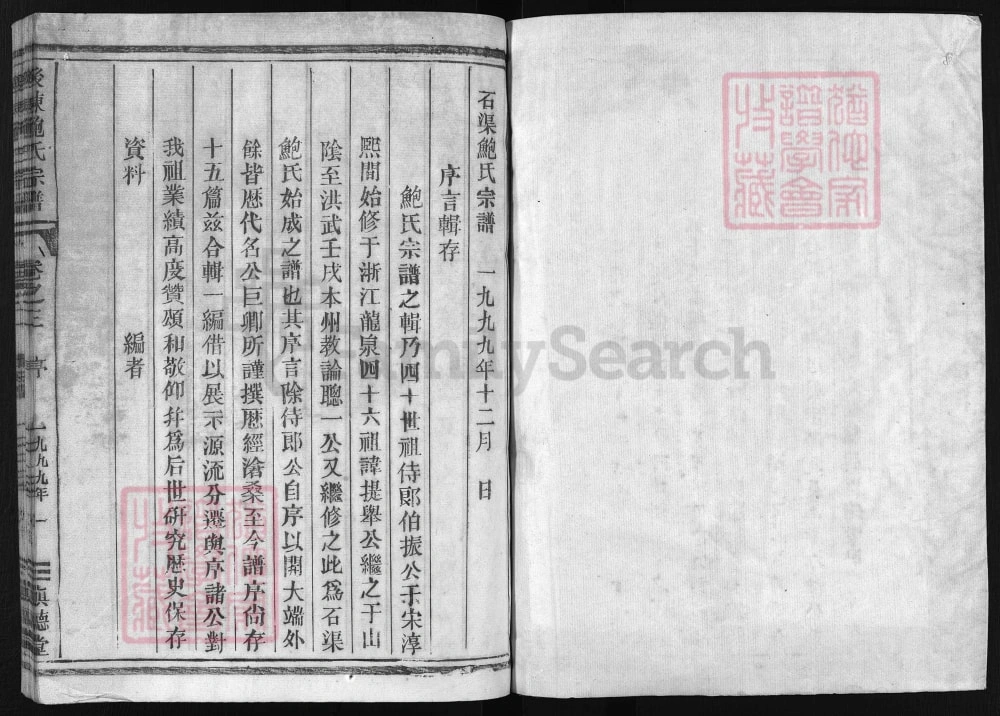 石渠鮑氏宗譜 一九九九年十二月 日
序言輯存
鮑氏宗譜之輯乃四十世祖侍郎伯振公于宋淳
熙間始修于浙江龍泉四十六祖諱提舉公繼之于山
陰至洪武壬戌本州教諭聰一公又繼修之此爲石渠
鮑氏始成之譜也其序言除侍郎公自序以開大端外
餘皆歷代名公巨卿所謹撰歷經滄桑至今譜序尚存
十五篇兹合輯一編借以展示源流分遷與序諸公對
我祖業績高度贊頌和敬仰并爲后世研究歷史保存
資料 編者
鮑氏宗譜 卷之三 序 一九九九年 一 德堂
FamilySearch
8